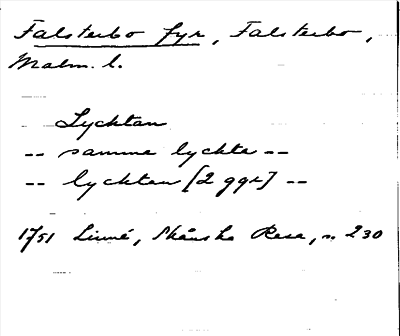 Falsterbo fyr, Falsterbo,
Malm. l.
Lycktan
-- samma lyckta --
-- lycktan [2 ggr] --
1751 Linné, Skånska Resa, s. 230